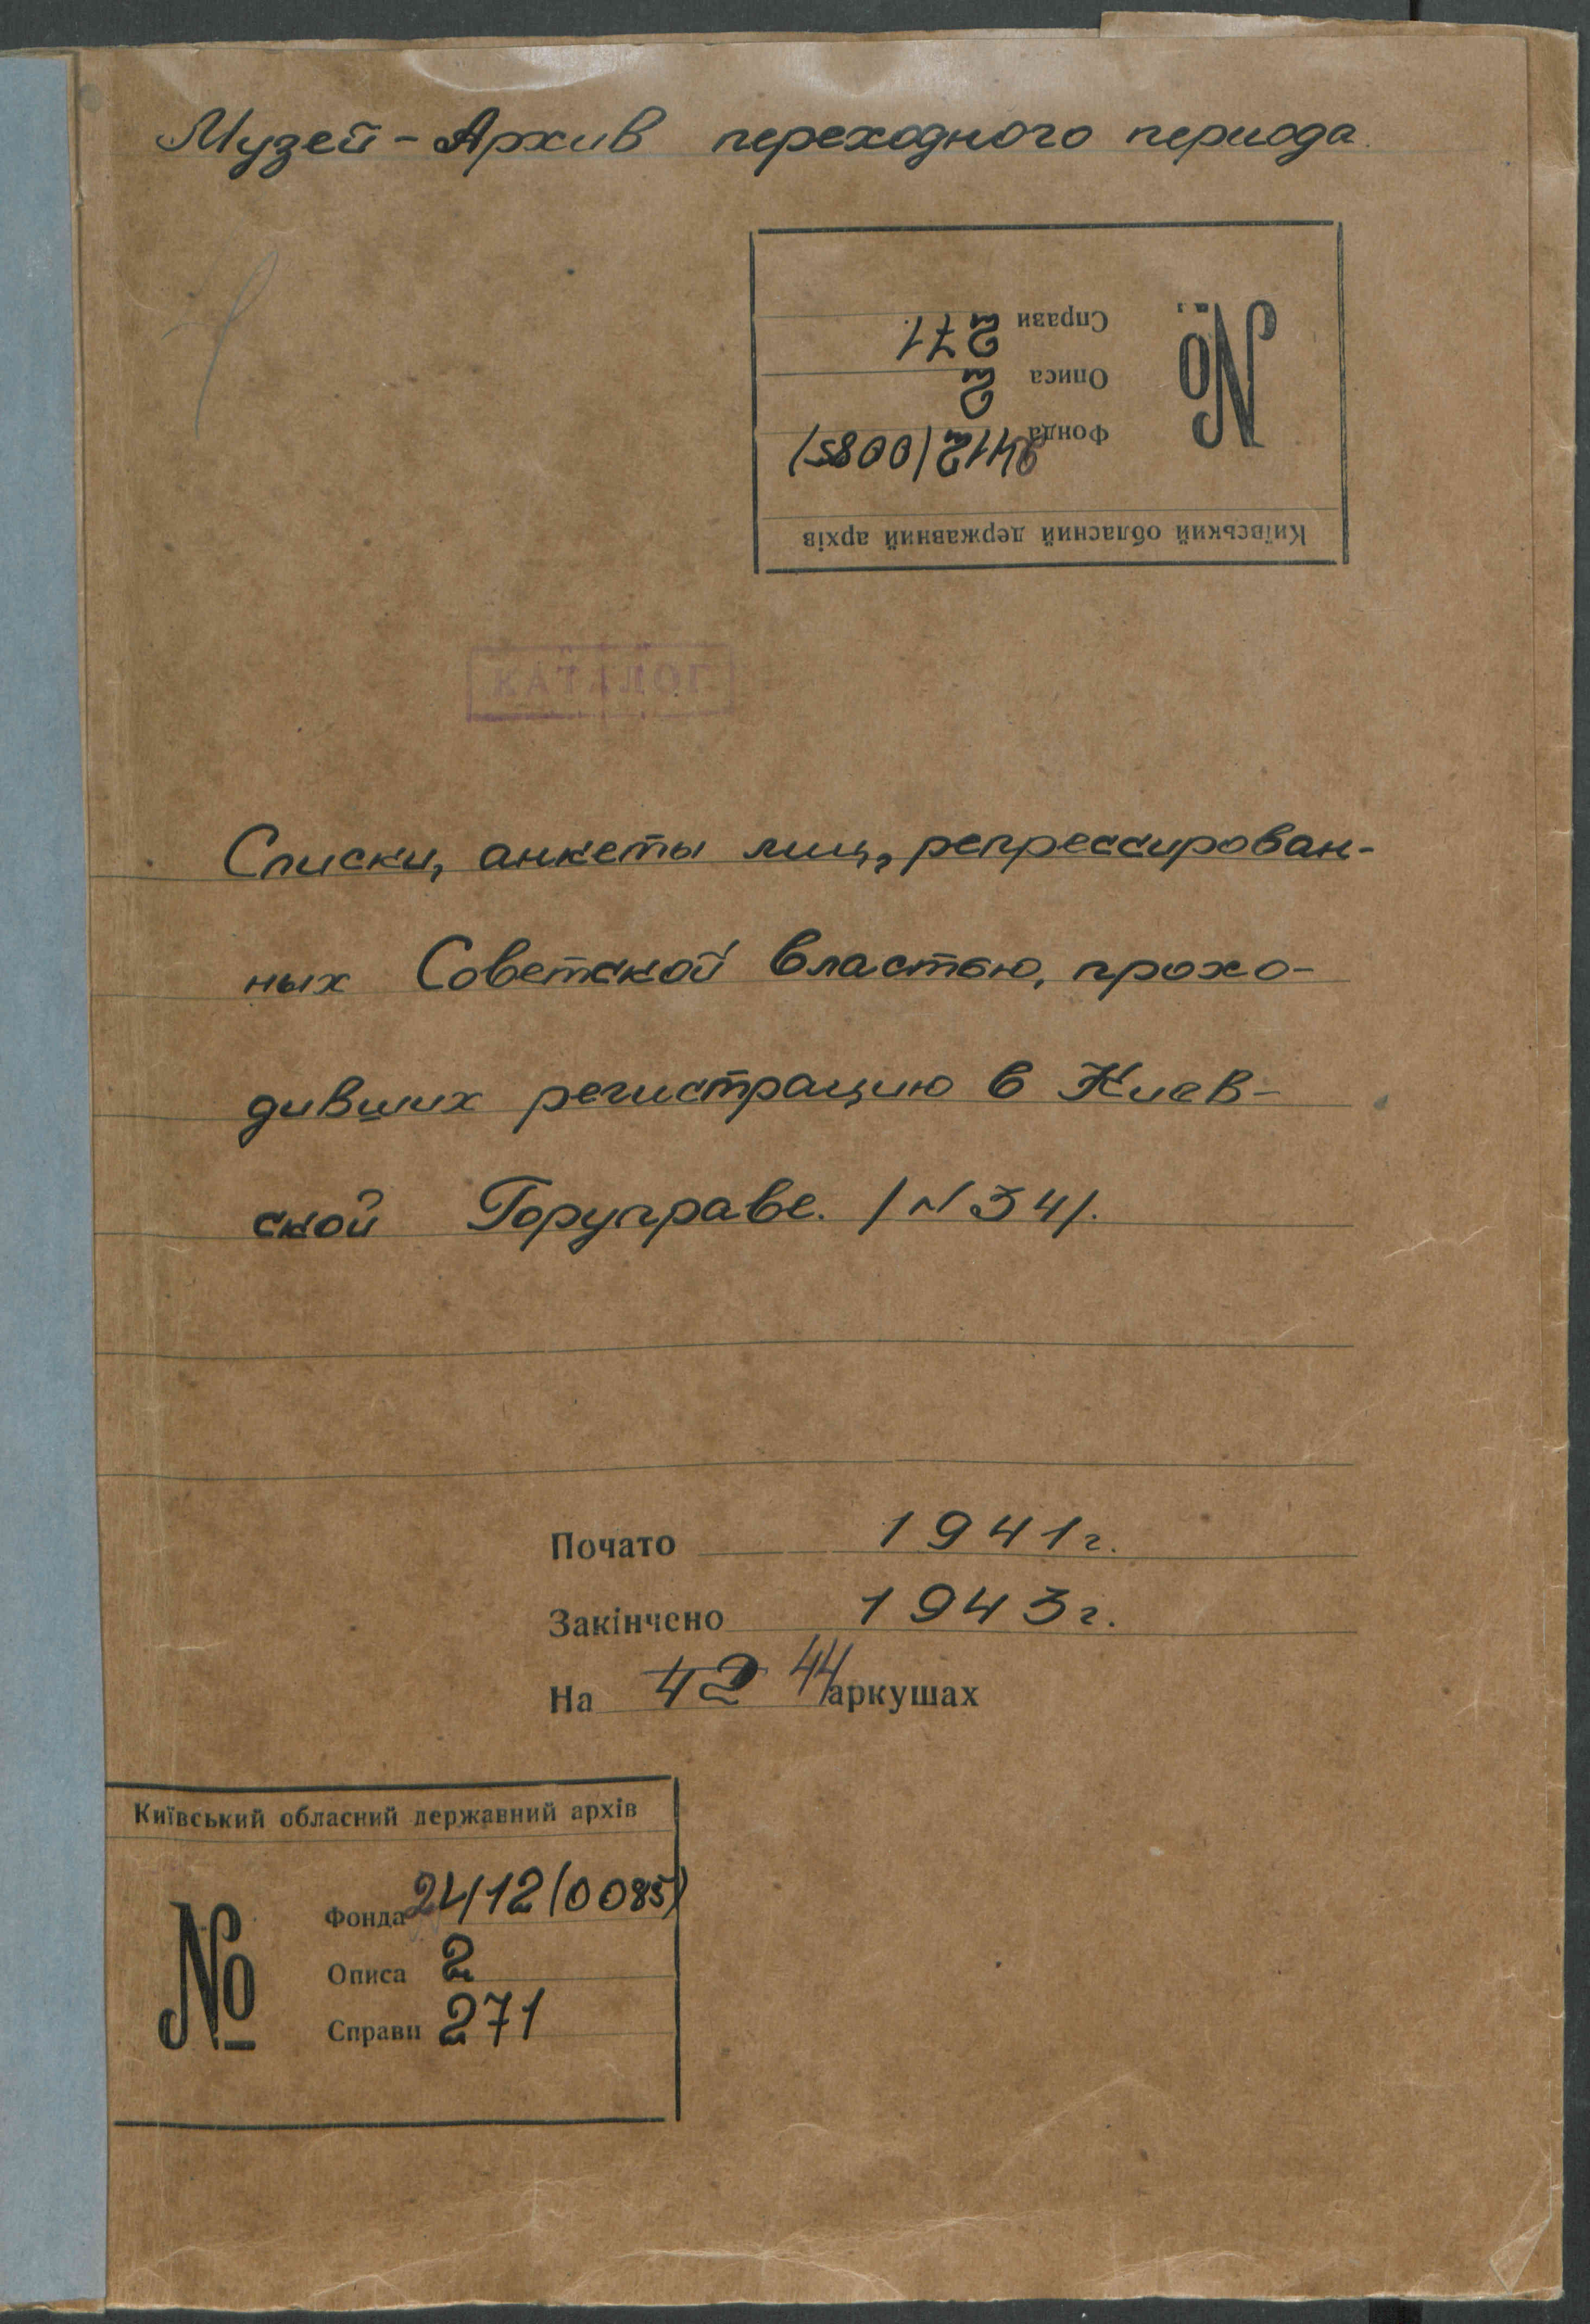 Музей-Архив переходного периода.
Київський обласний державний архів
№
Фонда 2412(0085)
Описа 2
Справи 271.
КАТАЛОГ
Списки, анкеты лиц, репрессирован-
ных Советской властью, прохо-
дивших регистрацию в Киев-
ской Горуправе. /N34/.
Почато 1941г.
Закінчено 1943г.
На 42 44 аркушах
Київський обласний державний архів
№
Фонда 2412(0085)
Описа 2
Справи 271